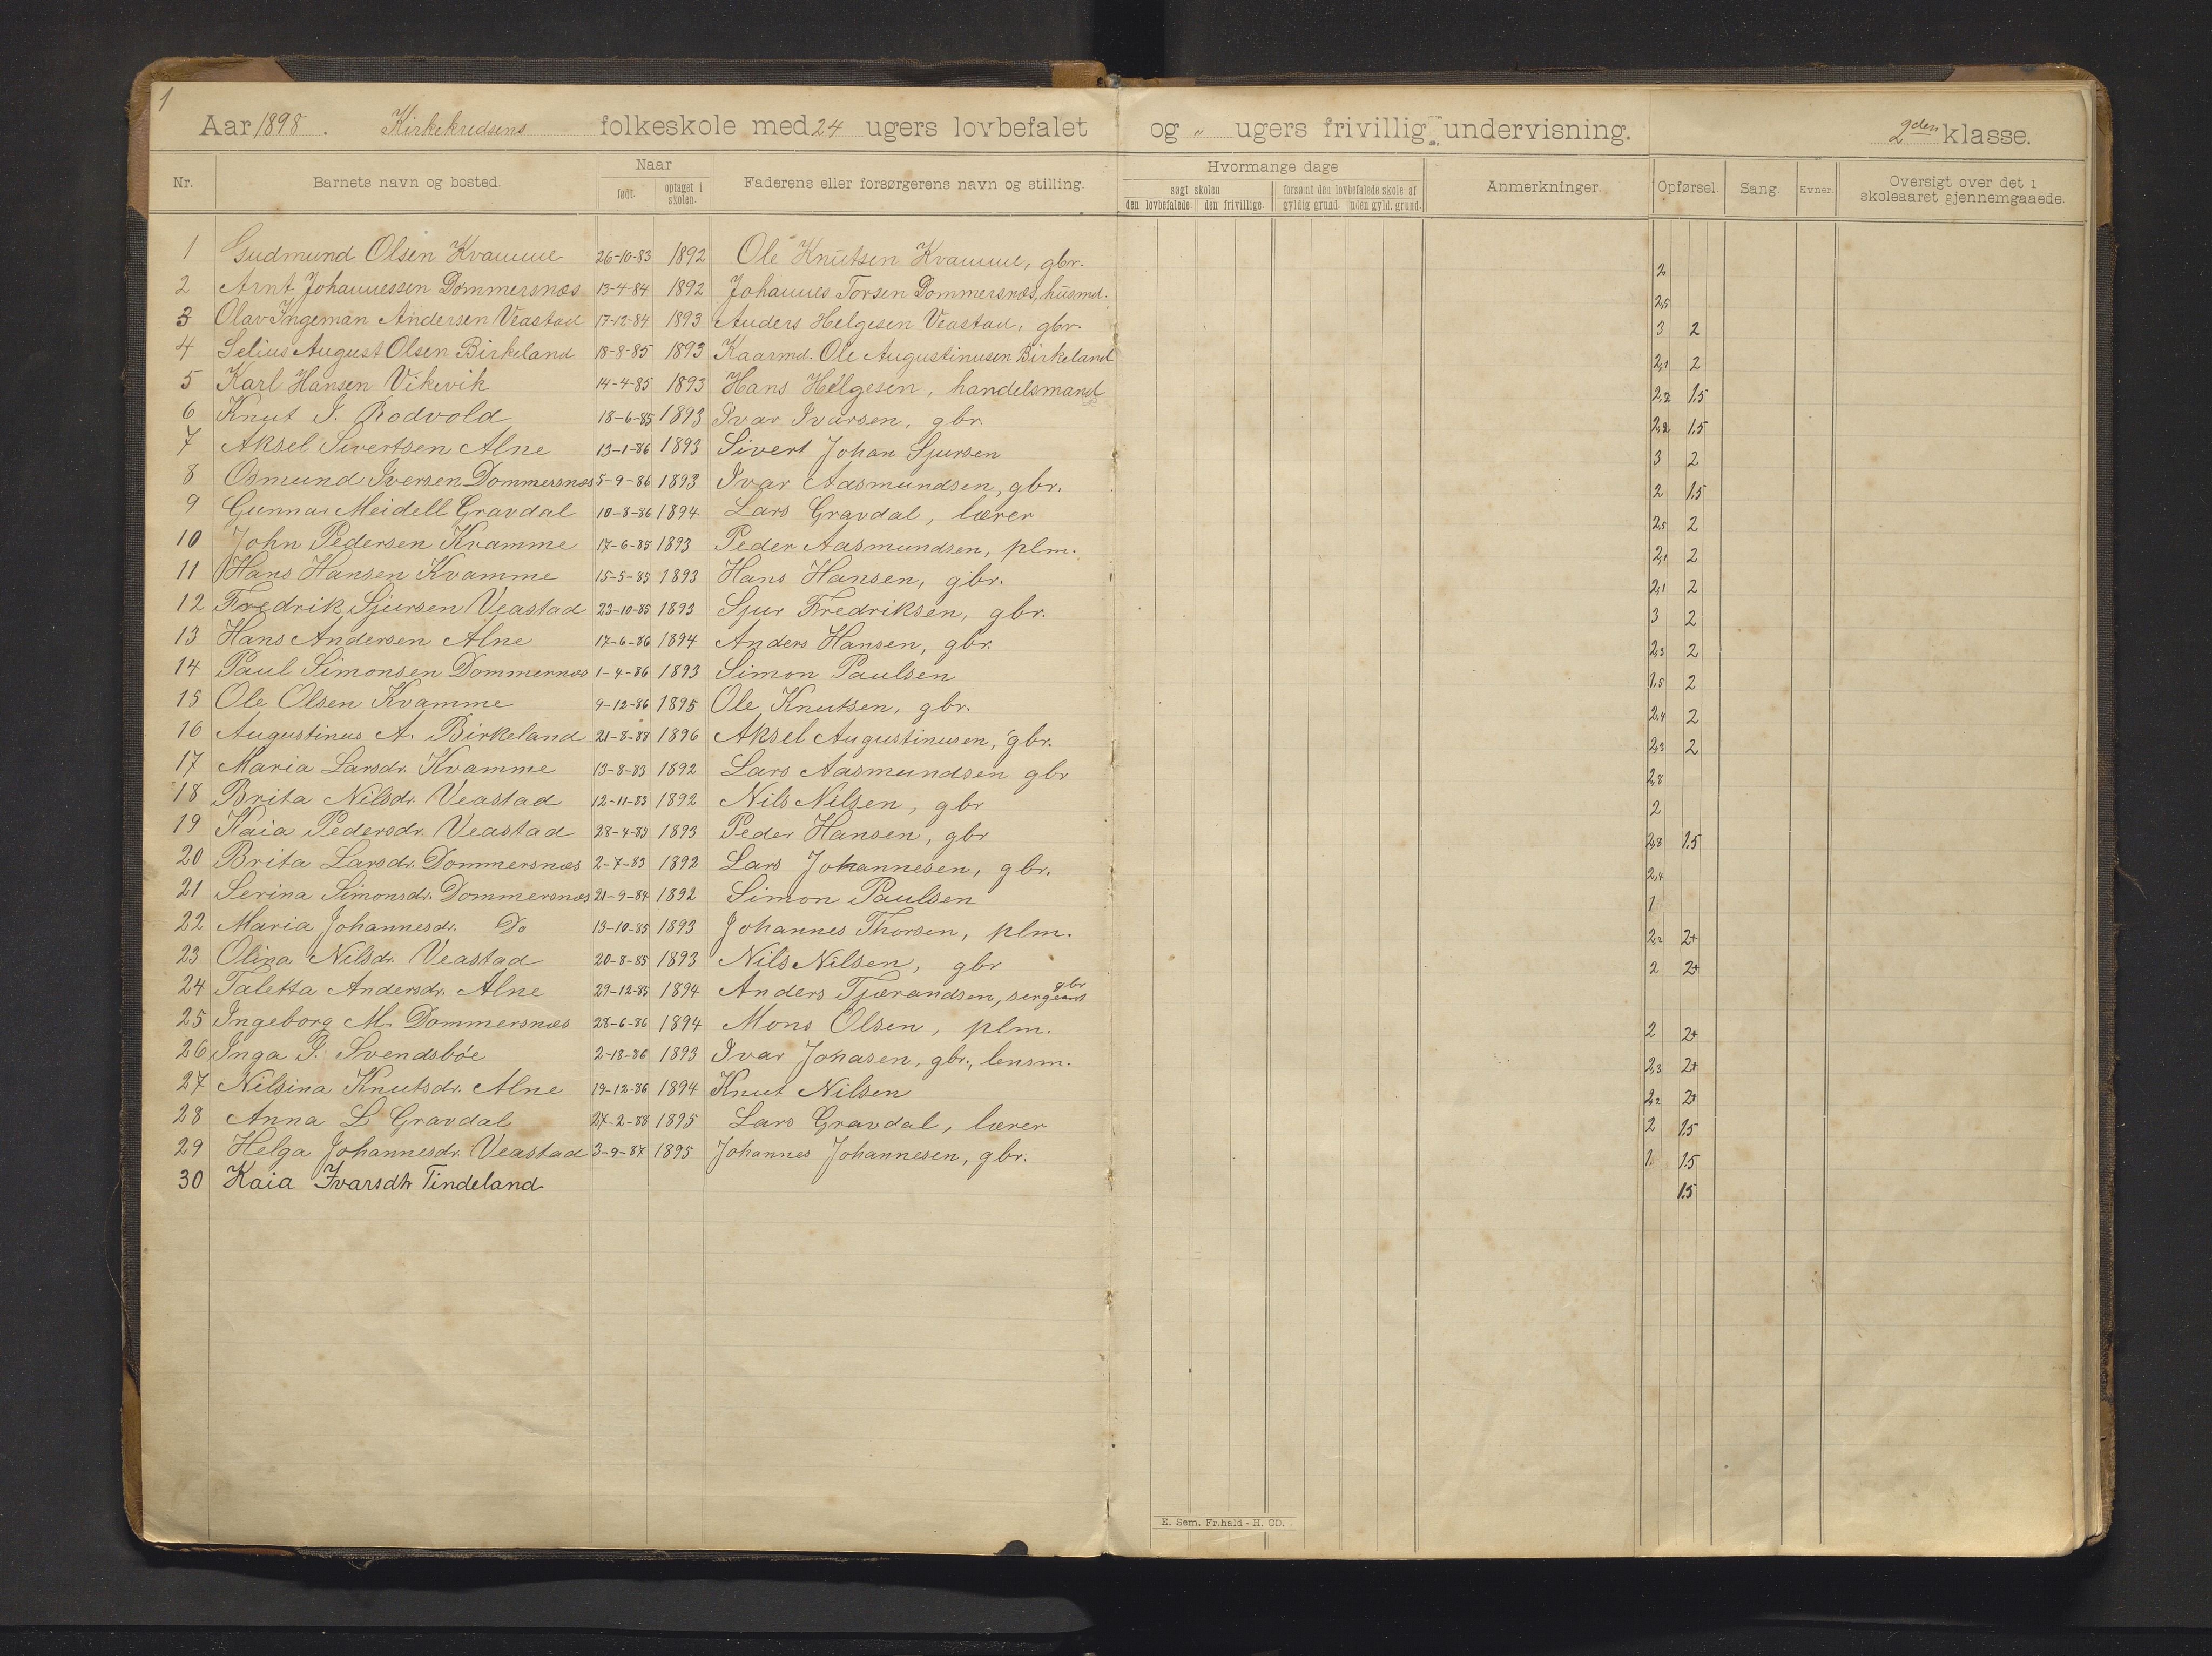 1
Aar 1898. Kirkekredsens folkeskole med 24 ugers lovbefalet og „ ugers frivillig undervisning. 2den klasse.
Nr. Barnets navn og bosted. Naar født. optaget i skolen. Faderens eller forsørgerens navn og stilling. Hvormange dage søgt skolen den lovbefalede. den frivillige. forsømt den lovbefalede skole af gyldig grund. uden gyld. grund. Anmerkninger. Opførsel. Sang. Evner. Oversigt over det i skoleaaret gjennemgaaede.
1 Gudmund Olsen Kvamme 26-10-83 1892 Ole Knutsen Kvamme, gbr. 2
2 Arnt Johannessen Dommersnæs 13-4-84 1892 Johannes Torsen Dommersnæs, husmd. 2,5
3 Olav Ingeman Andersen Veastad 17-12-84 1893 Anders Helgesen Veastad, gbr. 3 2
4 Selius August Olsen Birkeland 18-8-85 1893 Kaarmd. Ole Augustinusen Birkeland 2,1 2
5 Karl Hansen Vikevik 14-4-85 1893 Hans Helgesen, handelsmand 2,2 1.5
6 Knut I. Rodvold 18-6-85 1893 Ivar Ivarsen, gbr. 2,2 1.5
7 Aksel Sivertsen Alne 13-1-86 1893 Sivert Johan Sjursen 3 2
8 Osmund Iversen Dommersnæs 5-9-86 1893 Ivar Aasmundsen, gbr. 2 1.5
9 Gunnar Meidell Gravdal 10-8-86 1894 Lars Gravdal, lærer 2,5 2
10 John Pedersen Kvamme 17-6-85 1893 Peder Aasmundsen, plm. 2,1 2
11 Hans Hansen Kvamme 15-5-85 1893 Hans Hansen, gbr. 2,1 2
12 Fredrik Sjursen Veastad 23-10-85 1893 Sjur Fredriksen, gbr. 3 2
13 Hans Andersen Alne 17-6-86 1894 Anders Hansen, gbr. 2,3 2
14 Paul Simonsen Dommernæs 1-4-86 1893 Simon Paulsen 1,5 2
15 Ole Olsen Kvamme 9-12-86 1895 Ole Knutsen, gbr. 2,4 2
16 Augustinus A. Birkeland 21-8-88 1896 Aksel Augustinusen, gbr. 2,3 2
17 Maria Larsdr. Kvamme 13-8-83 1892 Lars Aasmundsen gbr 2,8
18 Brita Nilsdr. Veastad 12-11-83 1892 Nils Nilsen, gbr 2
19 Kaia Pedersdr. Veastad 28-4-85 1893 Peder Hansen, gbr 2,3 1.5
20 Brita Larsdr. Dommersnæs 2-7-83 1892 Lars Johannesen, gbr. 2,4
21 Serina Simonsdr. Dommersnæs 21-9-84 1892 Simon Paulsen 1
22 Maria Johannesdr. Do 13-10-85 1893 Johannes Thorsen, plm. 2,2 2+
23 Olina Nilsdr. Veastad 20-8-85 1893 Nils Nilsen, gbr 2 2+
24 Taletta Andersdr. Alne 29-12-85 1894 Anders Tjærandsen, sergeant gbr
25 Ingeborg M. Dommersnæs 28-6-86 1894 Mons Olsen, plm. 2 2+
26 Inga I. Svendsbøe 2-18-86 1893 Ivar Jonasen, gbr., lensm. 2,3 2+
27 Nilsina Knutsdr. Alne 19-12-86 1894 Knut Nilsen 2,2 2+
28 Anna L Gravdal 27-2-88 1895 Lars Gravdal, lærer 2 1.5
29 Helga Johannesdr. Veastad 3-9-87 1895 Johannes Johannesen, gbr. 1. 1.5
30 Kaia Ivarsdtr Tindeland 1.5
E. Sem. Fr.hald - H. CD.